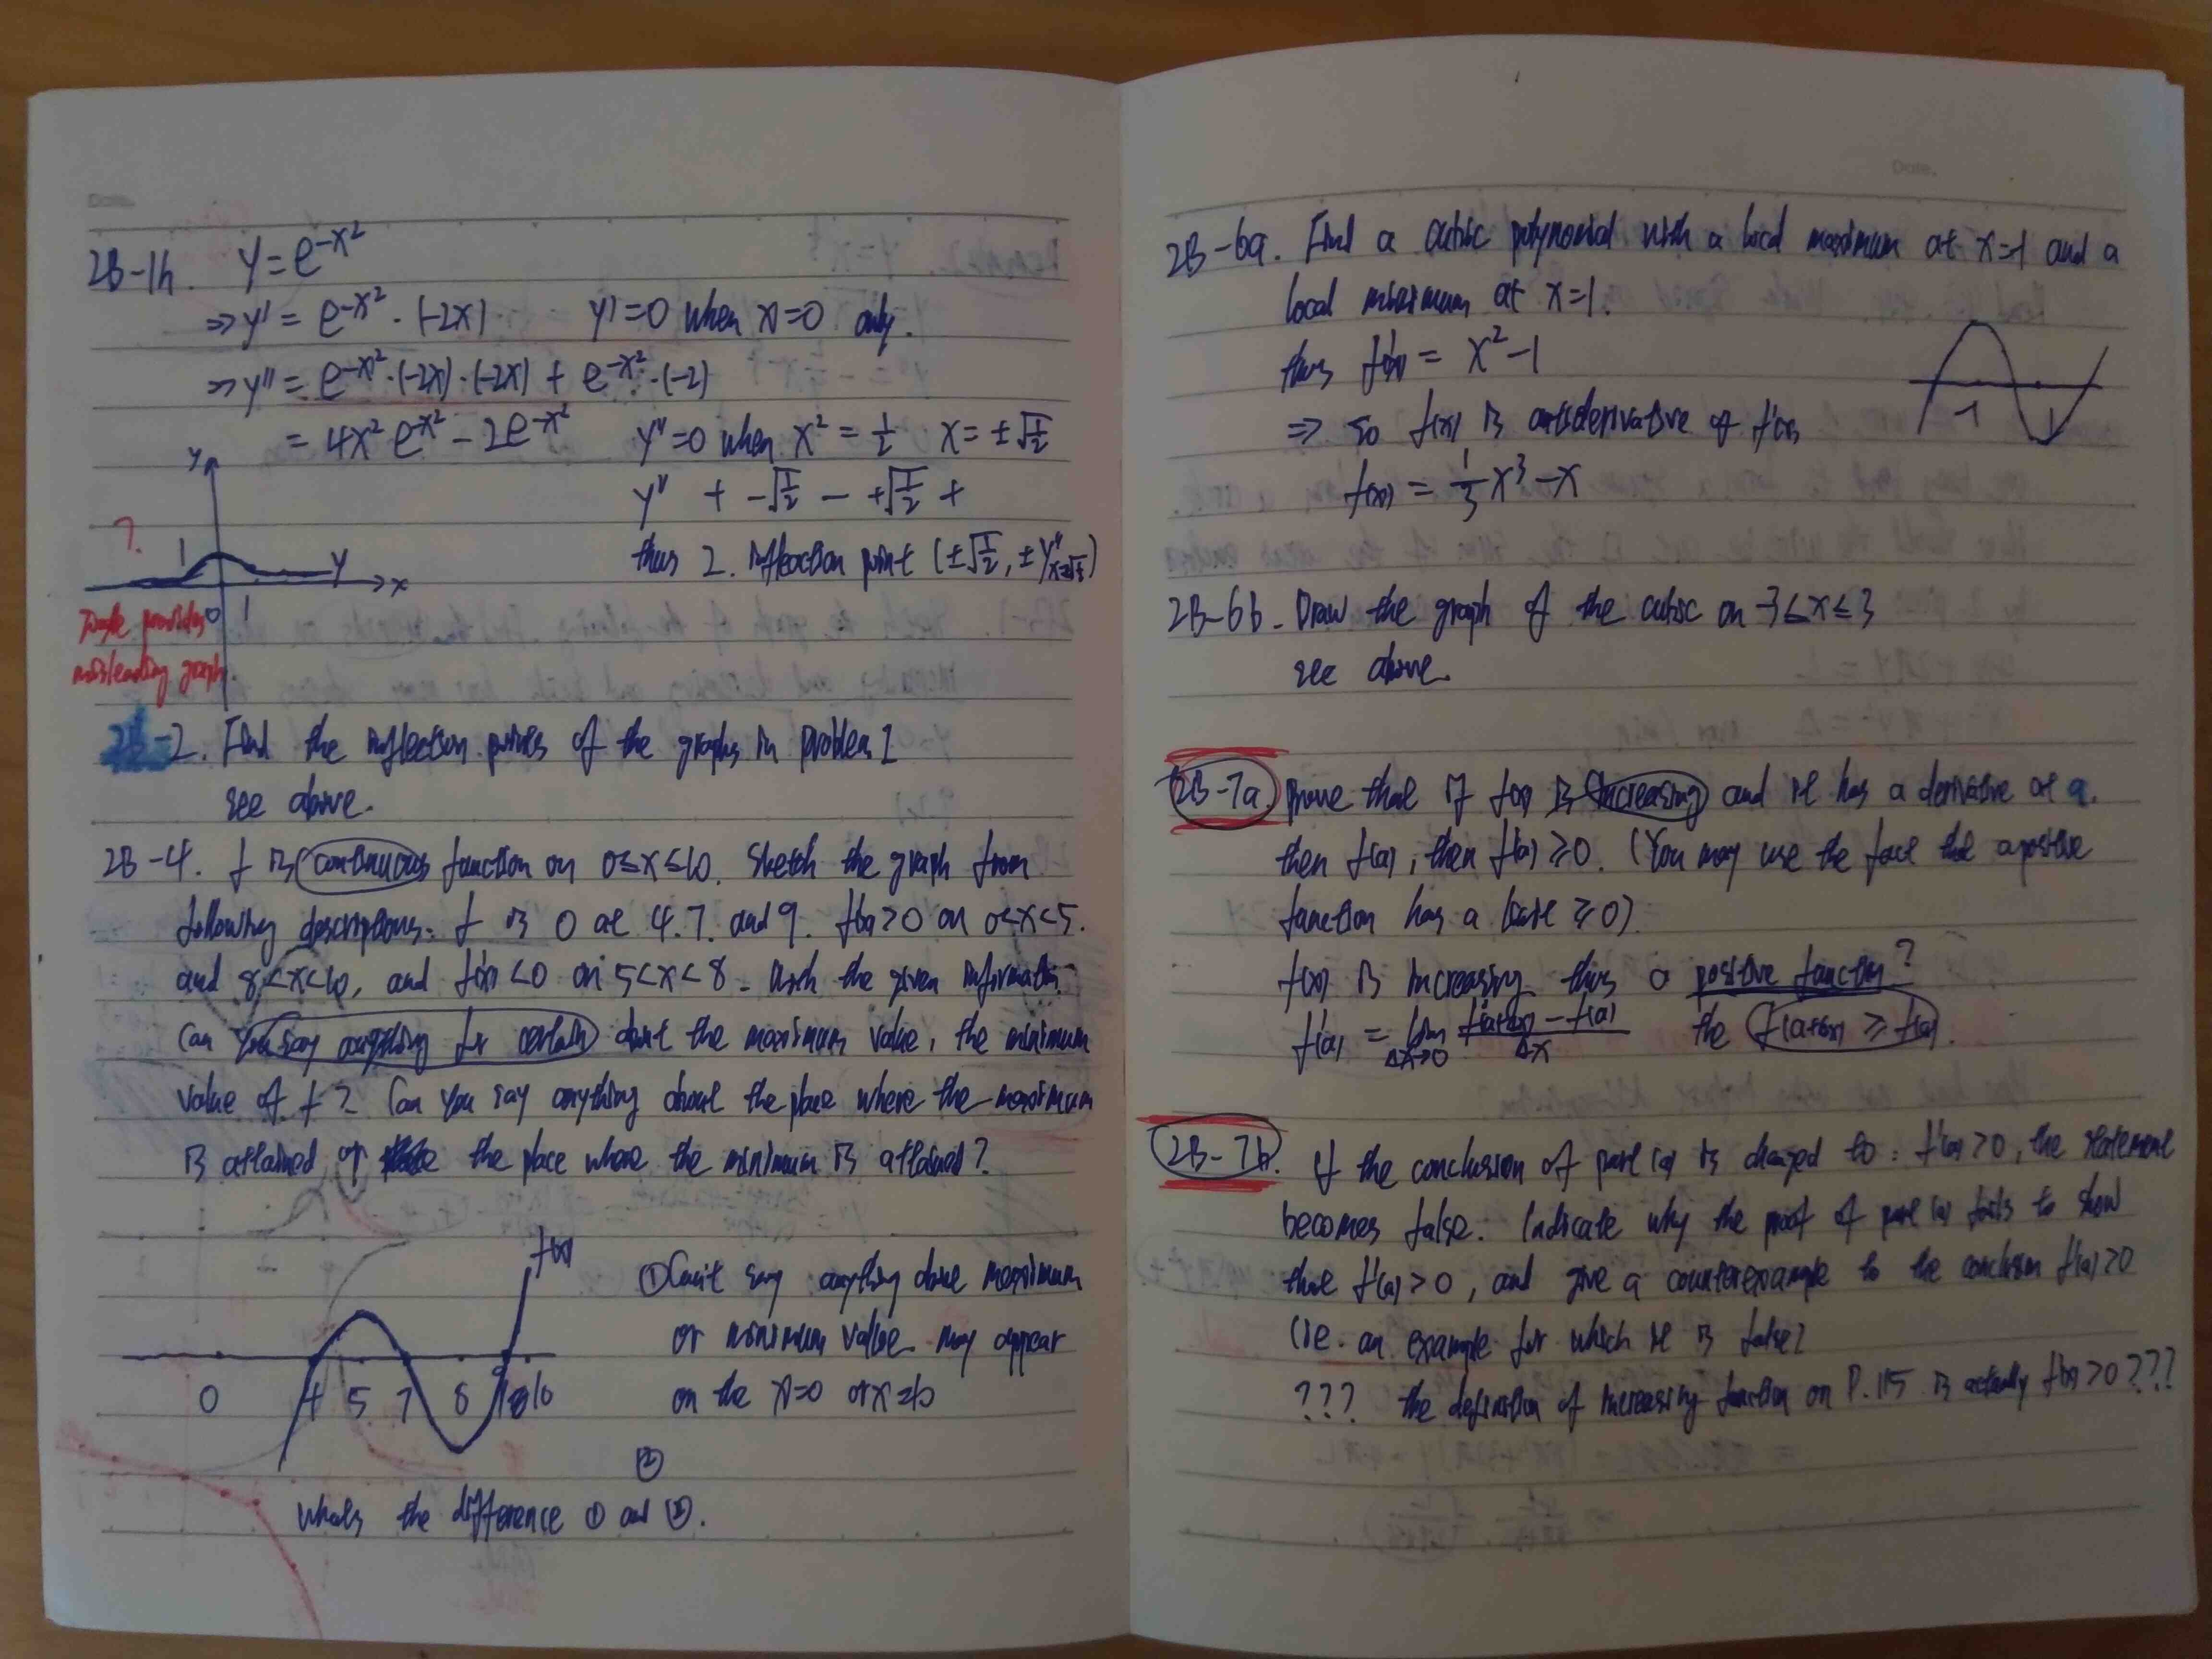 Date.
2B-1h. y = e^{-x²}
⇒ y' = e^{-x²} · (-2x)   y'=0 when x=0 only.
⇒ y'' = e^{-x²}·(-2x)·(-2x) + e^{-x²}·(-2)
= 4x² e^{-x²} - 2e^{-x²}   y''=0 when x² = 1/2   x = ±√(1/2)
y'' + -√(1/2) - +√(1/2) +
thus 2. inflection point (±√(1/2), ±y''
y
?
1
y
x
0 1
provides
misleading graph.
2B-2. Find the inflection points of the graphs in problem 1
see above.
2B-4. f is continuous function on 0≤x≤10. Sketch the graph from
following descriptions: f is 0 at 4. 7. and 9. f'(x)>0 on 0<x<5.
and 8<x<10, and f'(x)<0 on 5<x<8. With the given information
can you say anything for certain about the maximum value, the minimum
value of f? Can you say anything about the place where the maximum
is attained or the place where the minimum is attained?
f(x)
0 4 5 7 8 9 10
① Can't say anything about maximum
or minimum value may appear
on the x=0 or x=10
②
what's the difference ① and ②.
Date.
2B-6a. Find a cubic polynomial with a local maximum at x=-1 and a
local minimum at x=1.
thus f'(x) = x²-1
⇒ so f(x) is antiderivative of f'(x)
f(x) = 1/3 x³ - x
-1
1
2B-6b. Draw the graph of the cubic on -3≤x≤3
see above.
2B-7a. Prove that if f(x) is increasing and it has a derivative at a.
then f'(a), then f'(a) ≥0. (You may use the fact that a positive
function has a limit ≥0).
f(x) is increasing thus a positive function?
f'(a) = lim Δx→0 f(a+Δx) - f(a) / Δx   the f(a+Δx) ≥ f(a).
2B-7b. If the conclusion of part (a) is changed to: f'(a)>0, the statement
becomes false. Indicate why the proof of part (a) fails to show
that f'(a)>0, and give a counterexample to the conclusion f'(a)>0
(ie. an example for which it is false)
??? the definition of increasing function on P.115 is actually f'(x)>0???